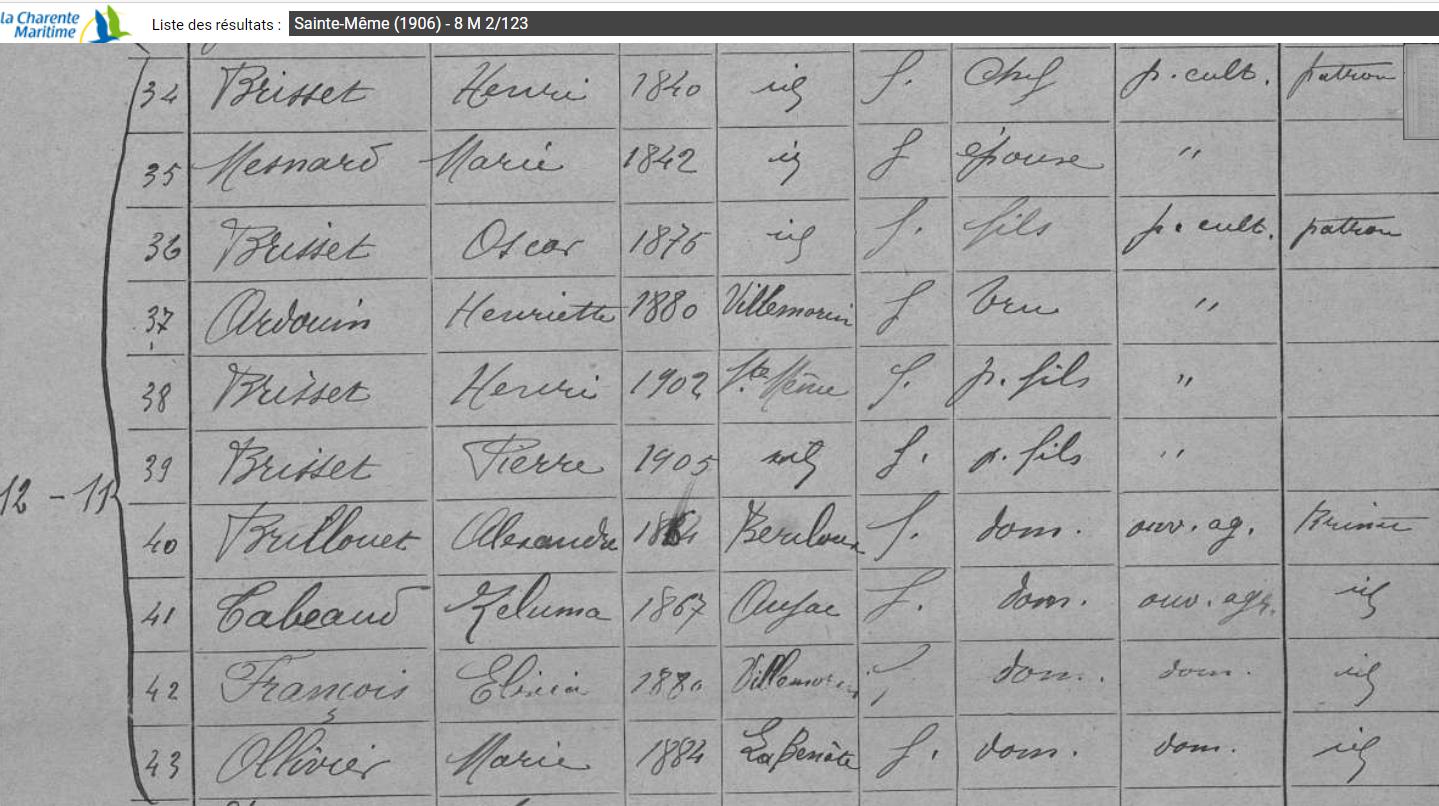 la Charente
Maritime
Liste des résultats : Sainte-Même (1906) - 8 M 2/123
34 Brisset Henri 1840 id f. Chef p. cult. patron
35 Mesnard Marie 1842 id f épouse "
36 Brisset Oscar 1876 id f. fils p. cult. patron
37 Ardouin Henriette 1880 Villemorin f bru "
38 Brisset Henri 1902 Ste Même f. p. fils "
39 Brisset Pierre 1905 id f. p. fils "
12 - 11
40 Brillouet Alexandre f. dom. ouv. ag. Brisset
41 Cabeaud Zeluma 1867 Aujac f. dom. ouv. agr. id
42 François 1880 Villemorin f dom. dom. id
43 Ollivier Marie 1884 La Benâte f. dom. dom. id